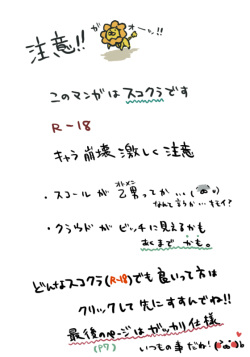 注意!!
がオーッ!!
このマンガはスコクラです
R-18
キャラ崩壊激しく注意
・スコールが乙男ってか…
オトメン
なんて言うか…キモイ?
・クラウドがビッチに見えるかも
あくまでかも。
どんなスコクラ(R-18)でも良いって方は
クリックして先にすすんでね!!
最後のページはガッカリ仕様
(P7) いつもの事だね!